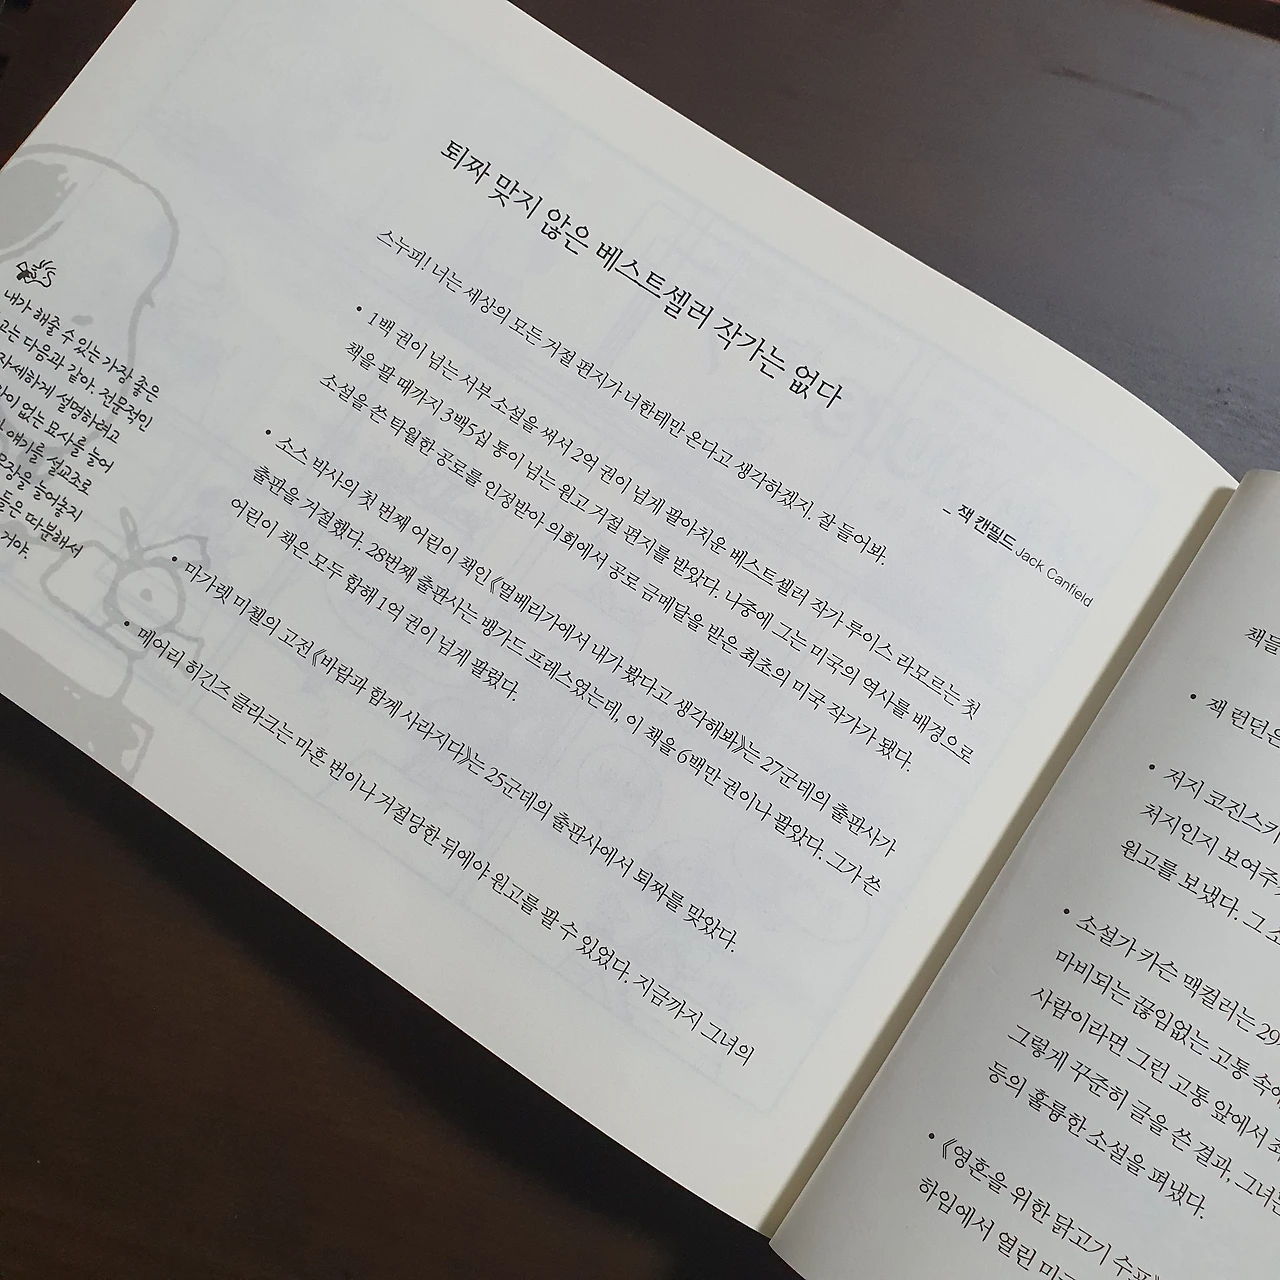 내가 해줄 수 있는 가장 좋은
고는 다음과 같아. 전문적인
자세하게 설명하려고
없는 묘사를 늘어
얘기를 설교조로
늘어놓지
들은 따분해서
거야.
퇴짜 맞지 않은 베스트셀러 작가는 없다
_ 잭 캔필드 Jack Canfield
스누피! 너는 세상의 모든 거절 편지가 너한테만 온다고 생각하겠지. 잘 들어봐.
• 1백 권이 넘는 서부 소설을 써서 2억 권이 넘게 팔아치운 베스트셀러 작가 루이스 라모르는 첫
책을 팔 때까지 3백5십 통이 넘는 원고 거절 편지를 받았다. 나중에 그는 미국의 역사를 배경으로
소설을 쓴 탁월한 공로를 인정받아 의회에서 공로 금메달을 받은 최초의 미국 작가가 됐다.
• 소스 박사의 첫 번째 어린이 책인 《멀베리가에서 내가 봤다고 생각해봐》는 27군데의 출판사가
출판을 거절했다. 28번째 출판사는 뱅가드 프레스였는데, 이 책을 6백만 권이나 팔았다. 그가 쓴
어린이 책은 모두 합해 1억 권이 넘게 팔렸다.
• 마가렛 미첼의 고전 《바람과 함께 사라지다》는 25군데의 출판사에서 퇴짜를 맞았다.
• 메어리 히긴즈 클라크는 마흔 번이나 거절당한 뒤에야 원고를 팔 수 있었다. 지금까지 그녀의
책들
• 잭 런던은
• 저지 코진스키
처지인지 보여주
원고를 보냈다. 그 소
• 소설가 카슨 맥컬러는 29
마비되는 끊임없는 고통 속에
사람이라면 그런 고통 앞에서
그렇게 꾸준히 글을 쓴 결과, 그녀는
등의 훌륭한 소설을 펴냈다.
• 《영혼을 위한 닭고기 수프》
하임에서 열린 미